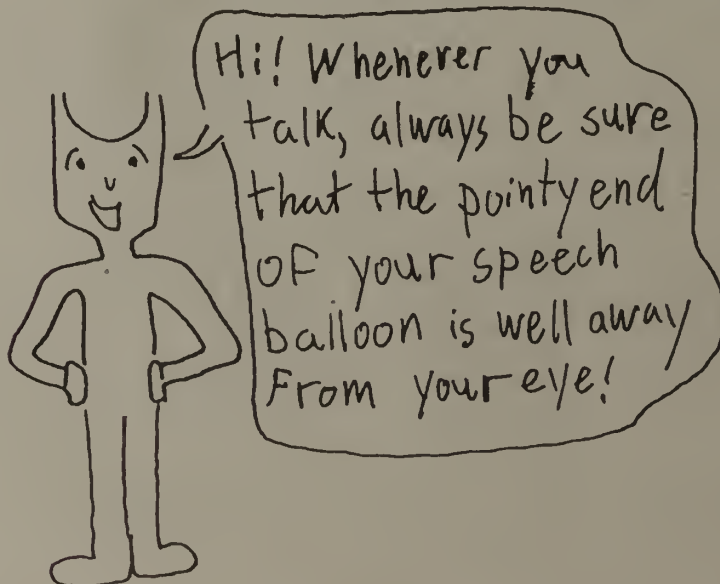 Hi! Whenever you
talk, always be sure
that the pointy end
of your speech
balloon is well away
From your eye!